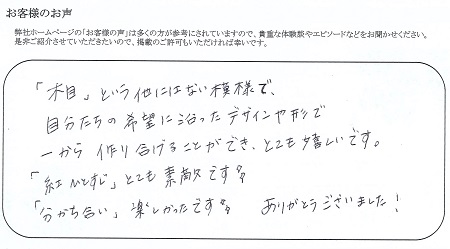 お客様のお声
弊社ホームページの「お客様の声」は多くの方が参考にされていますので、貴重な体験談やエピソードなどをお聞かせください。
是非ご紹介させていただきたいので、掲載のご許可もいただければ幸いです。
「木目」という他にはない模様で、
自分たちの希望に沿ったデザインや形で
一から作り合げることができ、とても嬉しいです。
「紅ひとすじ」とても素敵です
「分かち合い」楽しかったです ありがとうございました!